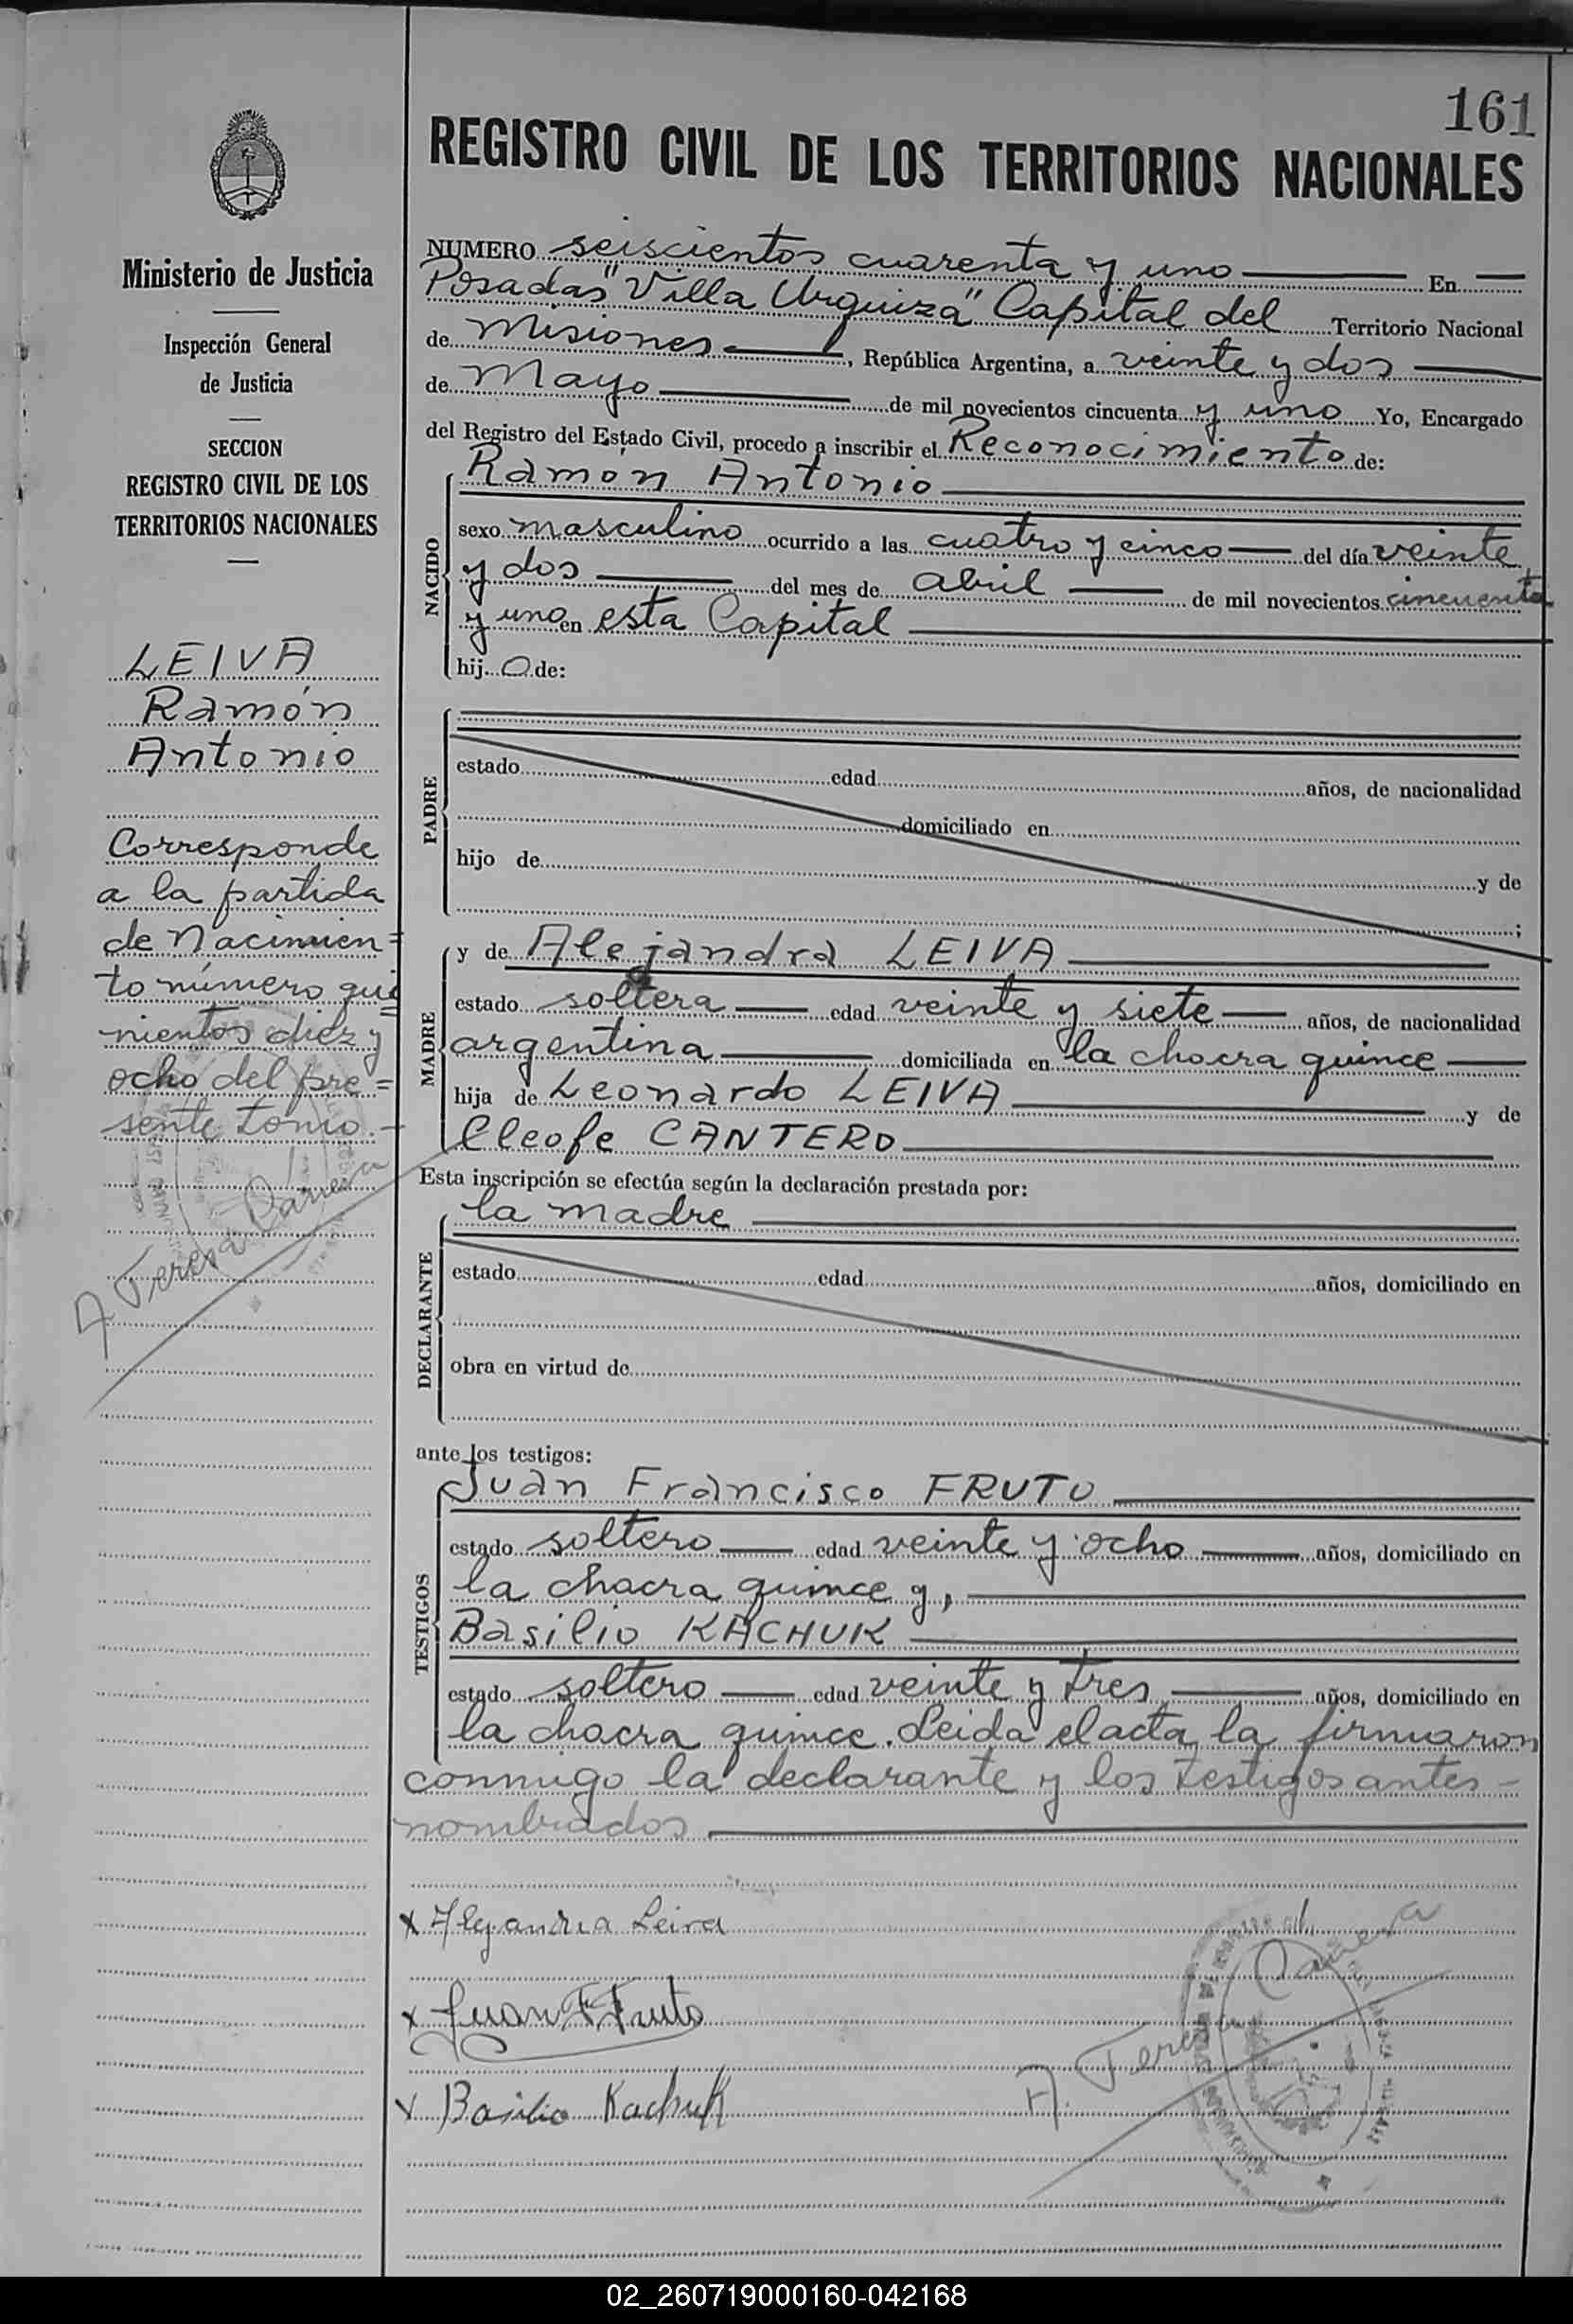 161
REGISTRO CIVIL DE LOS TERRITORIOS NACIONALES
Ministerio de Justicia
Inspección General
de Justicia
SECCION
REGISTRO CIVIL DE LOS
TERRITORIOS NACIONALES
LEIVA
Ramón
Antonio
Corresponde
a la partida
de Nacimien=
to número qui=
nientos diez y
ocho del pre=
sente tomo.-
A Teresa
NUMERO seiscientos cuarenta y uno En
Posadas "Villa Urquiza" Capital del Territorio Nacional
de Misiones, República Argentina, a veinte y dos
de Mayo de mil novecientos cincuenta y uno Yo, Encargado
del Registro del Estado Civil, procedo a inscribir el Reconocimiento de:
NACIDO
Ramón Antonio
sexo masculino ocurrido a las cuatro y cinco del día veinte
y dos del mes de abril de mil novecientos cincuenta
y uno en esta Capital
hij o de:
PADRE
estado edad años, de nacionalidad
domiciliado en
hijo de y de
;
MADRE
y de Alejandra LEIVA
estado soltera edad veinte y siete años, de nacionalidad
argentina domiciliada en la chacra quince
hija de Leonardo LEIVA y de
Cleofe CANTERO
Esta inscripción se efectúa según la declaración prestada por:
DECLARANTE
la madre
estado edad años, domiciliado en
obra en virtud de
ante los testigos:
TESTIGOS
Juan Francisco FRUTO
estado soltero edad veinte y ocho años, domiciliado en
la chacra quince y,
Basilio KACHUK
estado soltero edad veinte y tres años, domiciliado en
la chacra quince. Leida el acta, la firmaron
conmigo la declarante y los testigos antes-
nombrados
x Alejandra Leiva
x Juan F Fruto
x Basilio Kachuk
A. Teresa
02_260719000160-042168